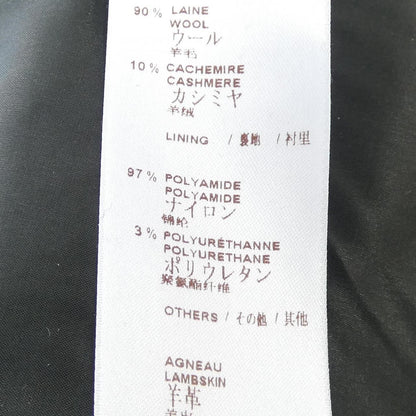 90% LAINE
WOOL
ウール
羊毛
10% CACHEMIRE
CASHMERE
カシミヤ
羊绒
LINING / 裏地 / 衬里
97% POLYAMIDE
POLYAMIDE
ナイロン
锦纶
3% POLYURÉTHANNE
POLYURETHANE
ポリウレタン
聚氨酯纤维
OTHERS / その他 / 其他
AGNEAU
LAMBSKIN
羊革